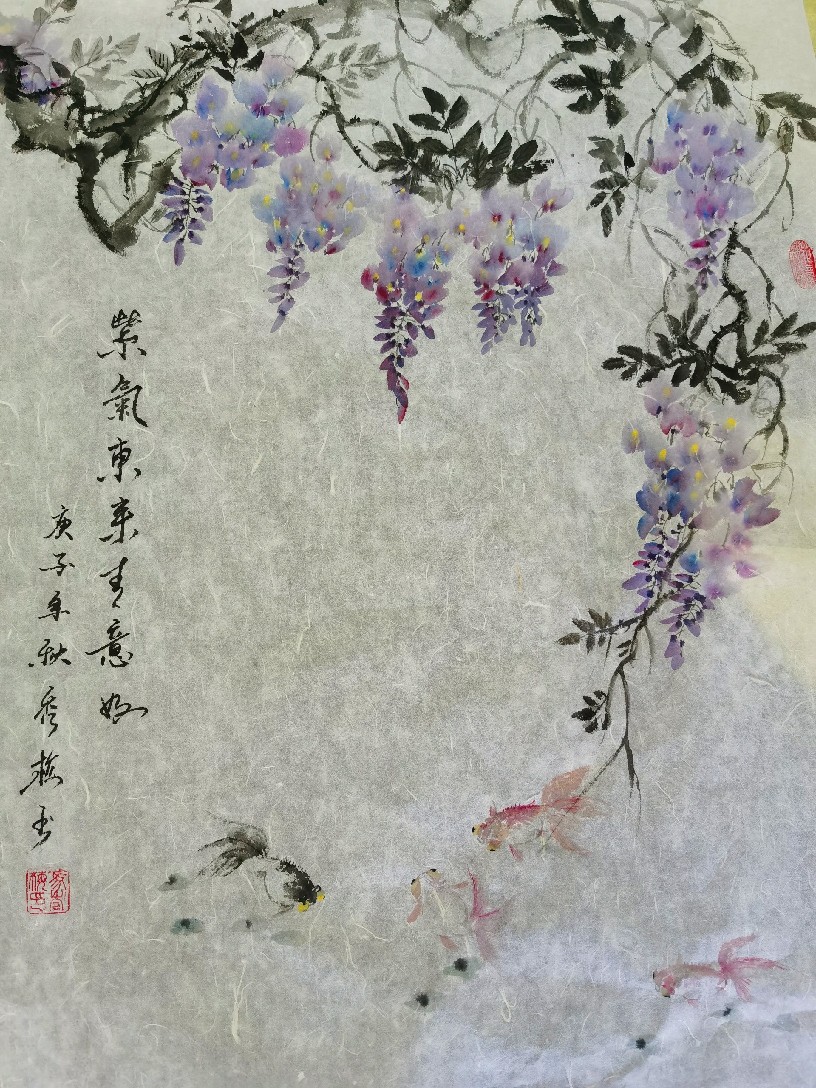 紫氣東来春意好
庚子年秋秀梅